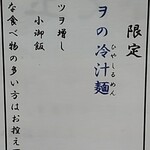 限定
ヲの冷汁麺
ひやしるめん
ツヲ増し
小御飯
な食べ物の多い方はお控え